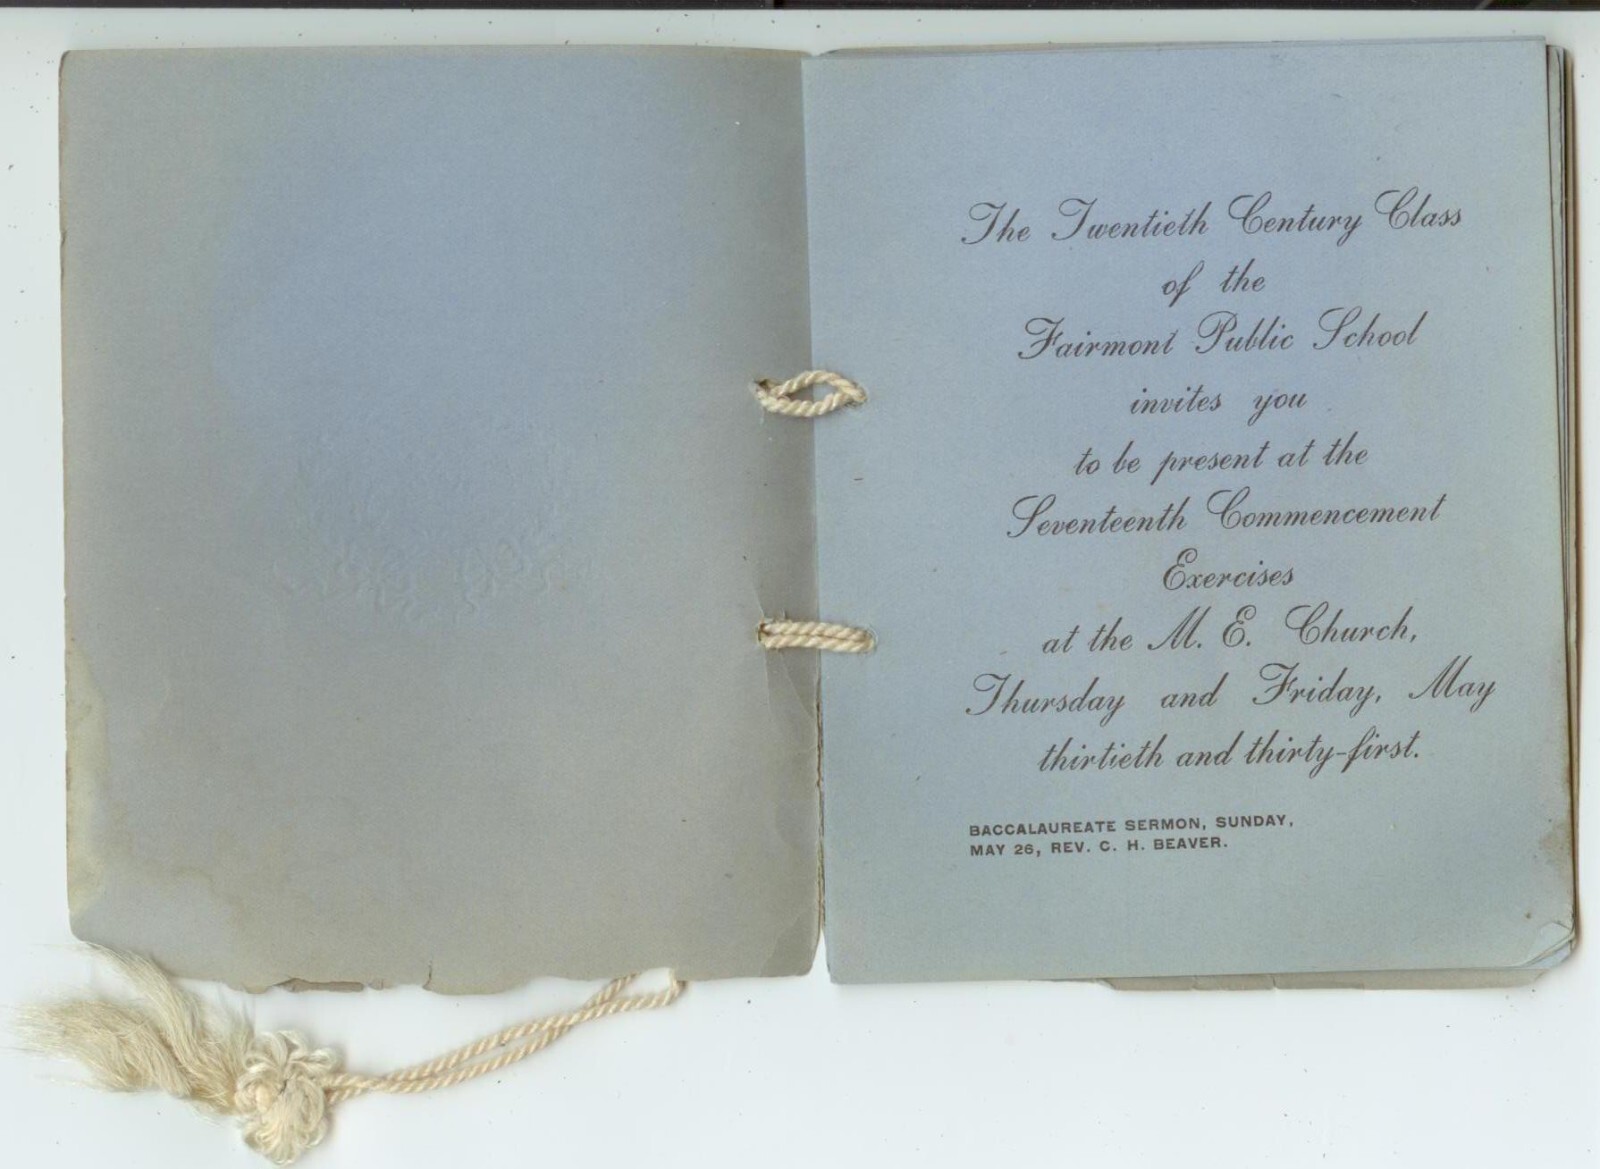 The Twentieth Century Class
of the
Fairmont Public School
invites you
to be present at the
Seventeenth Commencement
Exercises
at the M. E. Church,
Thursday and Friday, May
thirtieth and thirty-first.
BACCALAUREATE SERMON, SUNDAY,
MAY 26, REV. C. H. BEAVER.